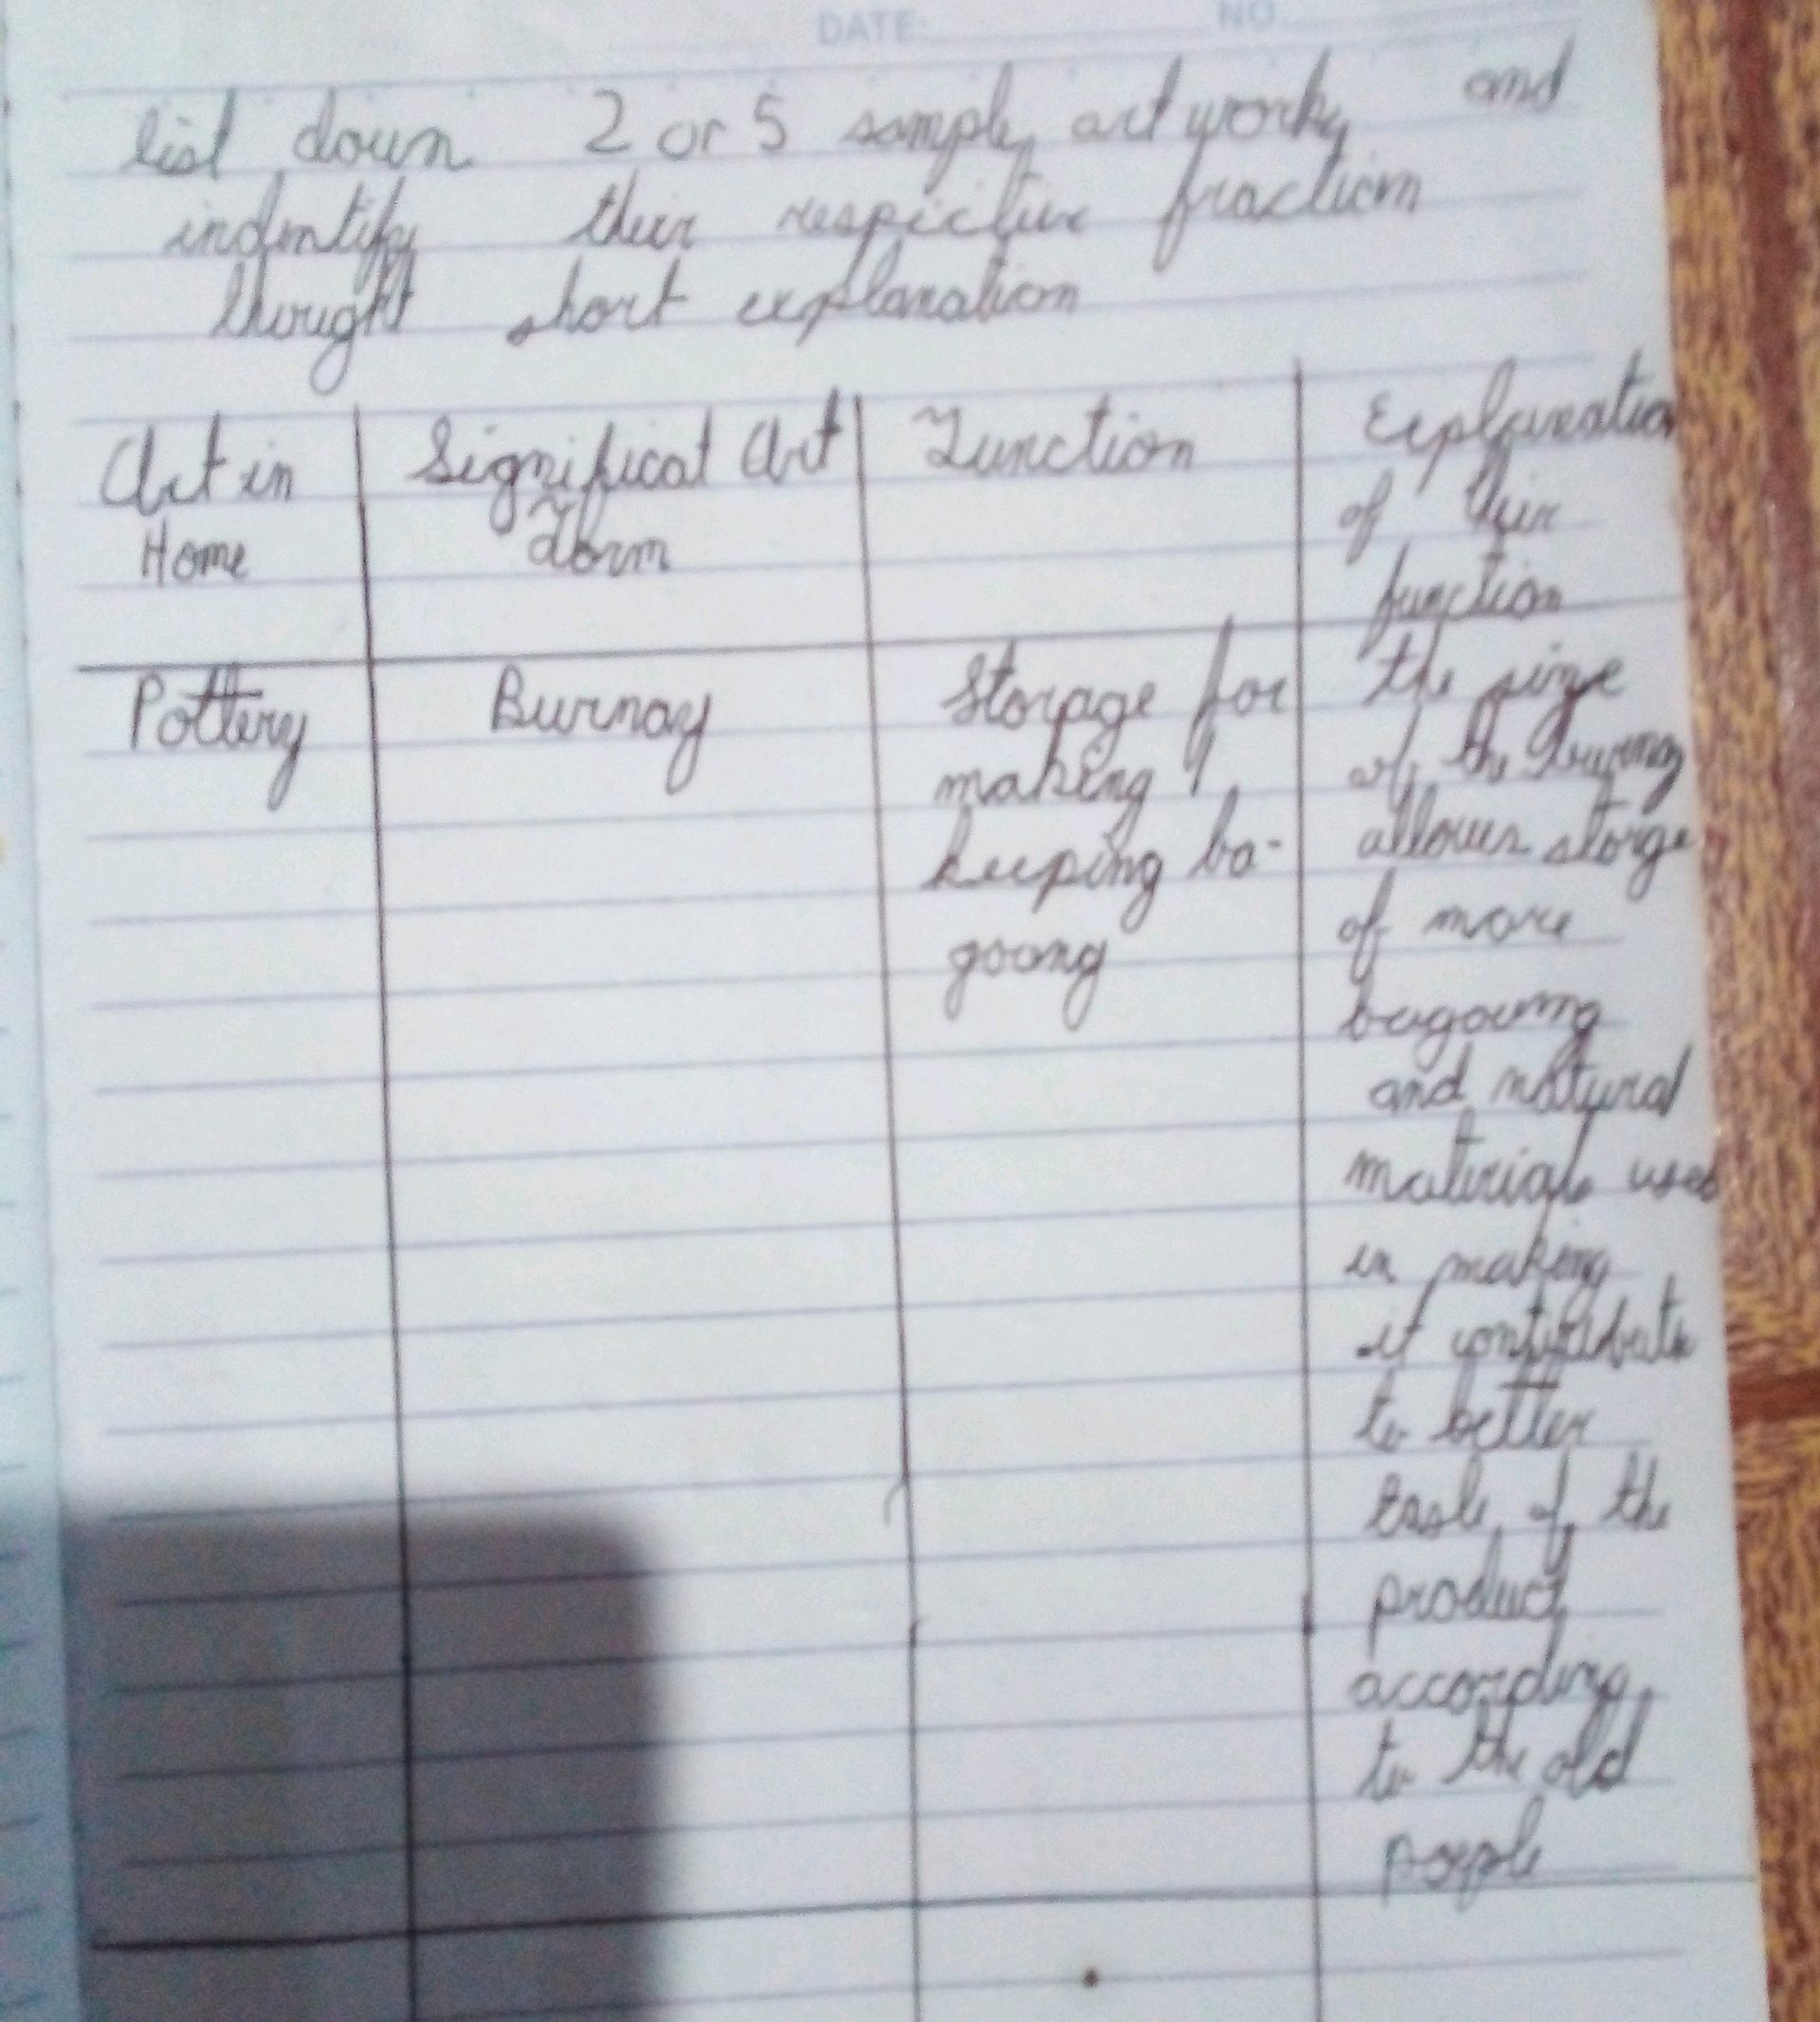 DATE: NO
list down 2 or 5 sample art works and
indentify their respictive fraction
thought short explanation
Art in Home
Significat Art Form
Function
Explanation
of their
function
Pottery
Burnay
Storage for
making &
keeping ba-
goong
the size
of the
allows storge
of more
bagoong
and natural
materials used
in making
it contribute
to better
taste of the
product
according
to the old
people